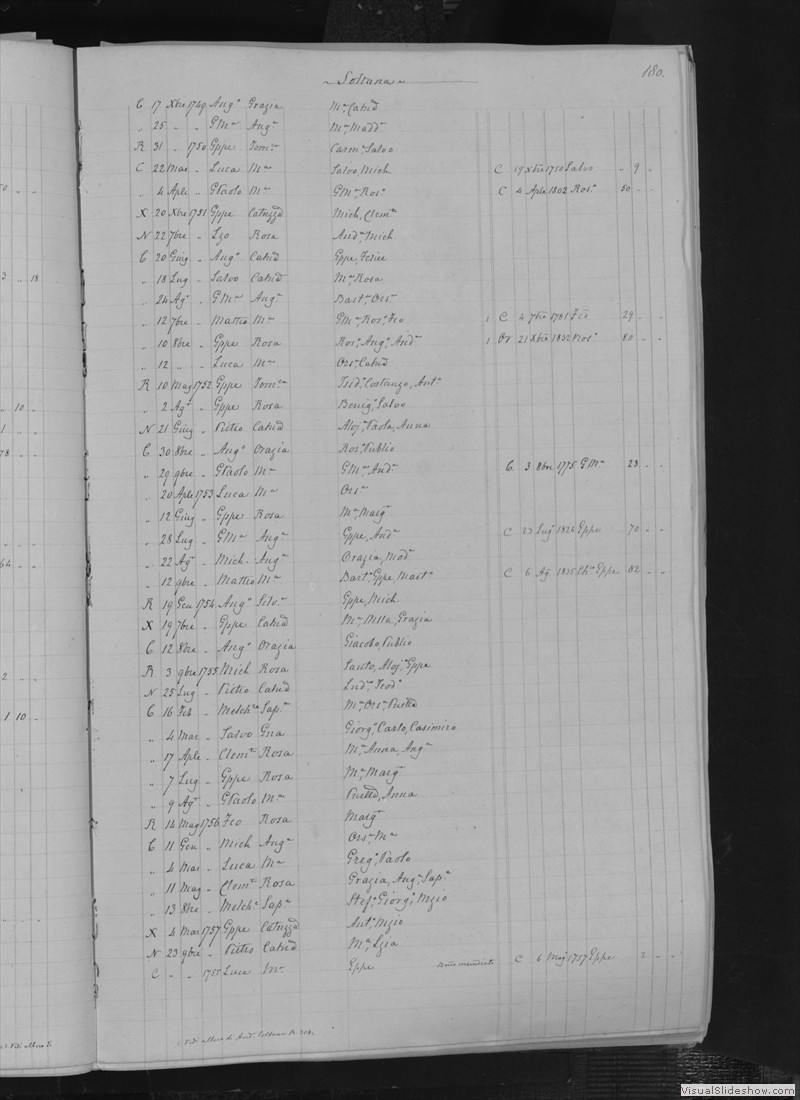 180.
Soltana
C 17 Xbre 1749 Angᵒ Grazia Mᵃ, Catᵈ
„ 25 „ „ GMᵃ Angᵃ Mᵃ, Madᵈ
R 31 „ 1750 Gppe Tomᵃ Carmᵒ, Salvo
C 22 Mar „ Luca Mᵃ Salvo, Mich C 19 Xbre 1750 Salvo „ 9 „ „
„ 4 Aple „ GPaolo Mᵃ GMᵃ, Rosᵃ C 4 Aple 1802 Rosᵃ 50 „ „
X 20 Xbre 1751 Gppe Catᵈ Mich, Clemᵃ
N 22 7bre „ Lzo Rosa Andᵃ, Mich
C 20 Giug „ Angᵒ Catᵈ Gppe, Felice
„ 18 Lug „ Salvo Catᵈ Mᵃ, Rosa
„ 24 Agᵗ „ GMᵃ Angᵃ Bartᵒ, Orsᵃ
„ 12 7bre „ Matteo Mᵃ GMᵃ, Rosᵃ, Fco 1 C 4 7bre 1781 Fco 29 „ „
„ 10 8bre „ Gppe Rosa Rosᵃ, Angᵃ, Andᵃ 1 Or 21 Xbre 1832 Rosᵃ 80 „ „
„ 12 „ „ Luca Mᵃ Orsᵃ, Catᵈ
R 10 Mag 1752 Gppe Tomᵃ Isidᵒ, Costanzo, Antᵒ
„ 2 Agᵗ „ Gppe Rosa Benigᵒ, Salvo
N 21 Giug „ Pietro Catᵈ Alojᵒ, Paola, Anna
C 30 8bre „ Angᵒ Orazia Rosᵃ, Publio
„ 29 9bre „ GPaolo Mᵃ GMᵃ, Andᵃ C 3 8bre 1775 GMᵃ 23 „ „
„ 20 Aple 1753 Luca Mᵃ Orsᵃ
„ 12 Giug „ Gppe Rosa Mᵃ, Margᵃ
„ 28 Lug „ GMᵃ Angᵃ Gppe, Andᵃ C 23 Lug 1824 Gppe 70 „ „
„ 22 Agᵗ „ Mich. Angᵃ Orazia, Modᵃ
„ 12 9bre „ Matteo Mᵃ Bartᵒ, Gppe, Martᵒ C 6 Agᵗ 1835 Gppe 82 „ „
R 19 Gen 1754 Angᵒ Silvᵃ Gppe, Mich
X 19 7bre „ Gppe Catᵈ Mᵃ, Grazia
C 12 8bre „ Angᵒ Orazia Giacobo, Publio
R 3 9bre 1755 Mich Rosa Santo, Alojᵒ, Gppe
N 25 Lug „ Pietro Catᵈ Ludᵒ, Teodᵃ
C 16 Feb „ Melchᵉ Sapᵃ Mᵃ, Orsᵃ
„ 4 Mar „ Salvo Gna Giorgᵒ, Carlo, Casimiro
„ 17 Aple „ Clemᵉ Rosa Mᵃ, Anna, Angᵃ
„ 7 Lug „ Gppe Rosa Mᵃ, Margᵃ
„ 9 Agᵗ „ GPaolo Mᵃ Anna
R 14 Mag 1756 Fco Rosa Margᵃ
C 11 Gen „ Mich Angᵃ Orsᵃ, Mᵃ
„ 4 Mar „ Luca Mᵃ Gregᵒ, Paolo
„ 11 Mag „ Clemᵉ Rosa Grazia, Angᵃ, Sapᵃ
„ 13 8bre „ Melchᵉ Sapᵃ Stefᵒ, Giorgᵒ, Nzio
X 4 Mar 1757 Gppe Catᵈ Antᵒ, Nzio
N 23 9bre „ Pietro Catᵈ Mᵃ, Lzia
C „ „ 1755 Luca Mᵃ Gppe C 6 Mag 1757 Gppe 2 „ „
VisualSlideshow.com